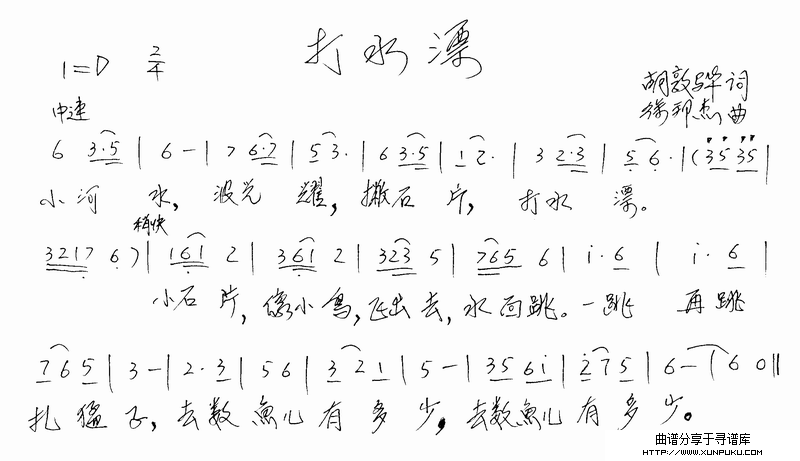 打水漂
1=D 2/4
胡敦骅词
徐邦杰曲
中速
6 3·5 | 6 - | 7 6·7 | 5 3· | 6 3·5 | 1 2· | 3 2·3 | 5 6· | (35 35 |
小河 水, 波光 耀, 撒石 片, 打水 漂。
稍快
3217 6·) | 161 2 | 361 2 | 323 5 | 765 6 | i·6 | i·6 |
小石片, 像小鸟, 飞出去, 水面跳。一跳 再跳
765 | 3 - | 2·3 | 56 | 321 | 5 - | 35 6i | 275 | 6 - | 60 ||
扎猛子, 去数鱼儿有多少, 去数鱼儿有多少。
曲谱分享于寻谱库
HTTP://WWW.XUNPUKU.COM